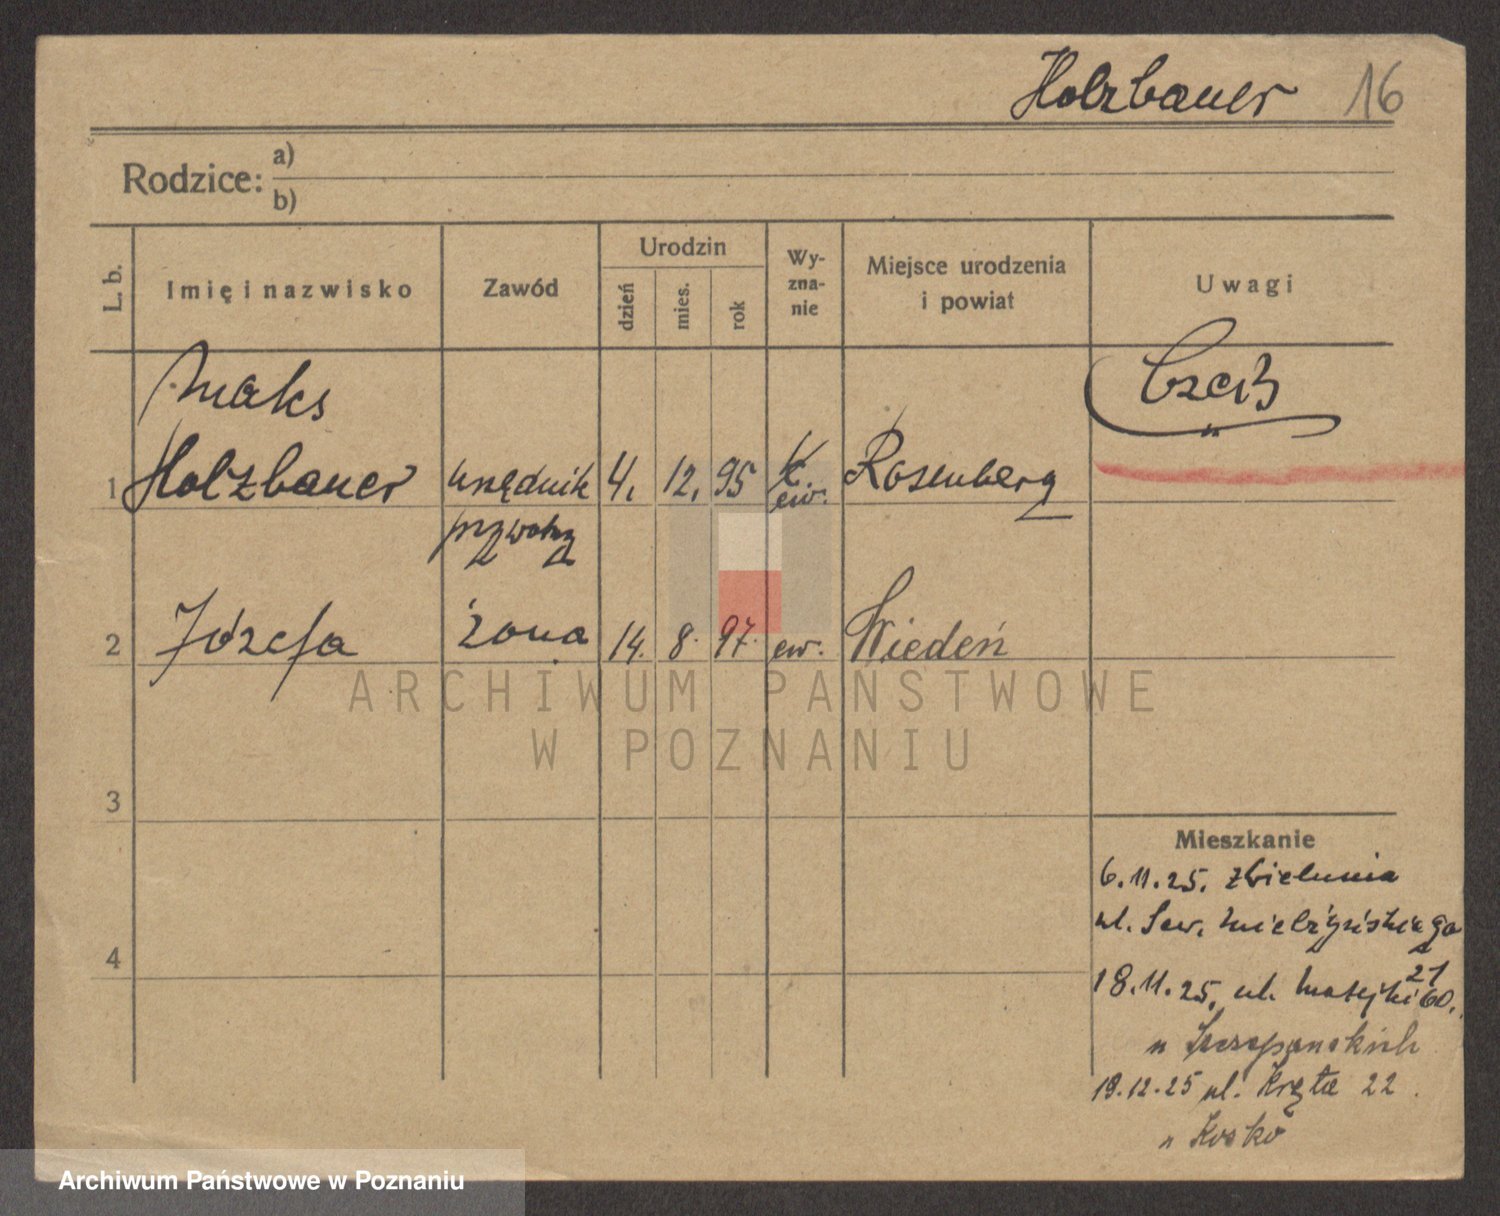 Holzbauer 16
Rodzice: a)
b)
L. b. Imię i nazwisko Zawód Urodzin dzień mies. rok Wy-zna-nie Miejsce urodzenia i powiat Uwagi
Maks Czech
1 Holzbauer urzędnik 4. 12. 95 ew. Rosenberg
prywatny
2 Józefa żona 14. 8. 97. ew. Wiedeń
ARCHIWUM PAŃSTWOWE
W POZNANIU
3
Mieszkanie
6.11.25. z Wielunia
ul. Sew. Mielżyńskiego
21
4
18.11.25. ul. Matejki 60.
u Szczepanskich
19.12.25 ul. Kręta 22
u
Archiwum Państwowe w Poznaniu